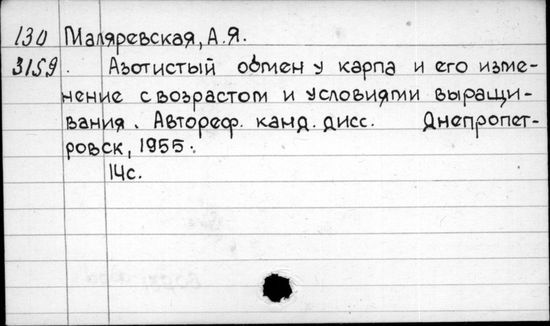 130 Маляревская, А.Я.
3159. Азотистый обмен у карпа и его изме-
нение с возрастом и условиями выращи-
вания. Автореф. канд. дисс. Днепропет-
ровск, 1955.
14с.